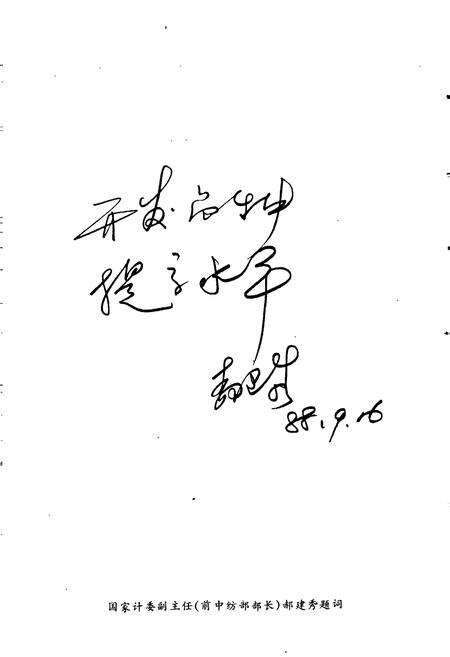 开发品种
提高水平
郝建秀
88.9.16
国家计委副主任(前中纺部部长)郝建秀题词